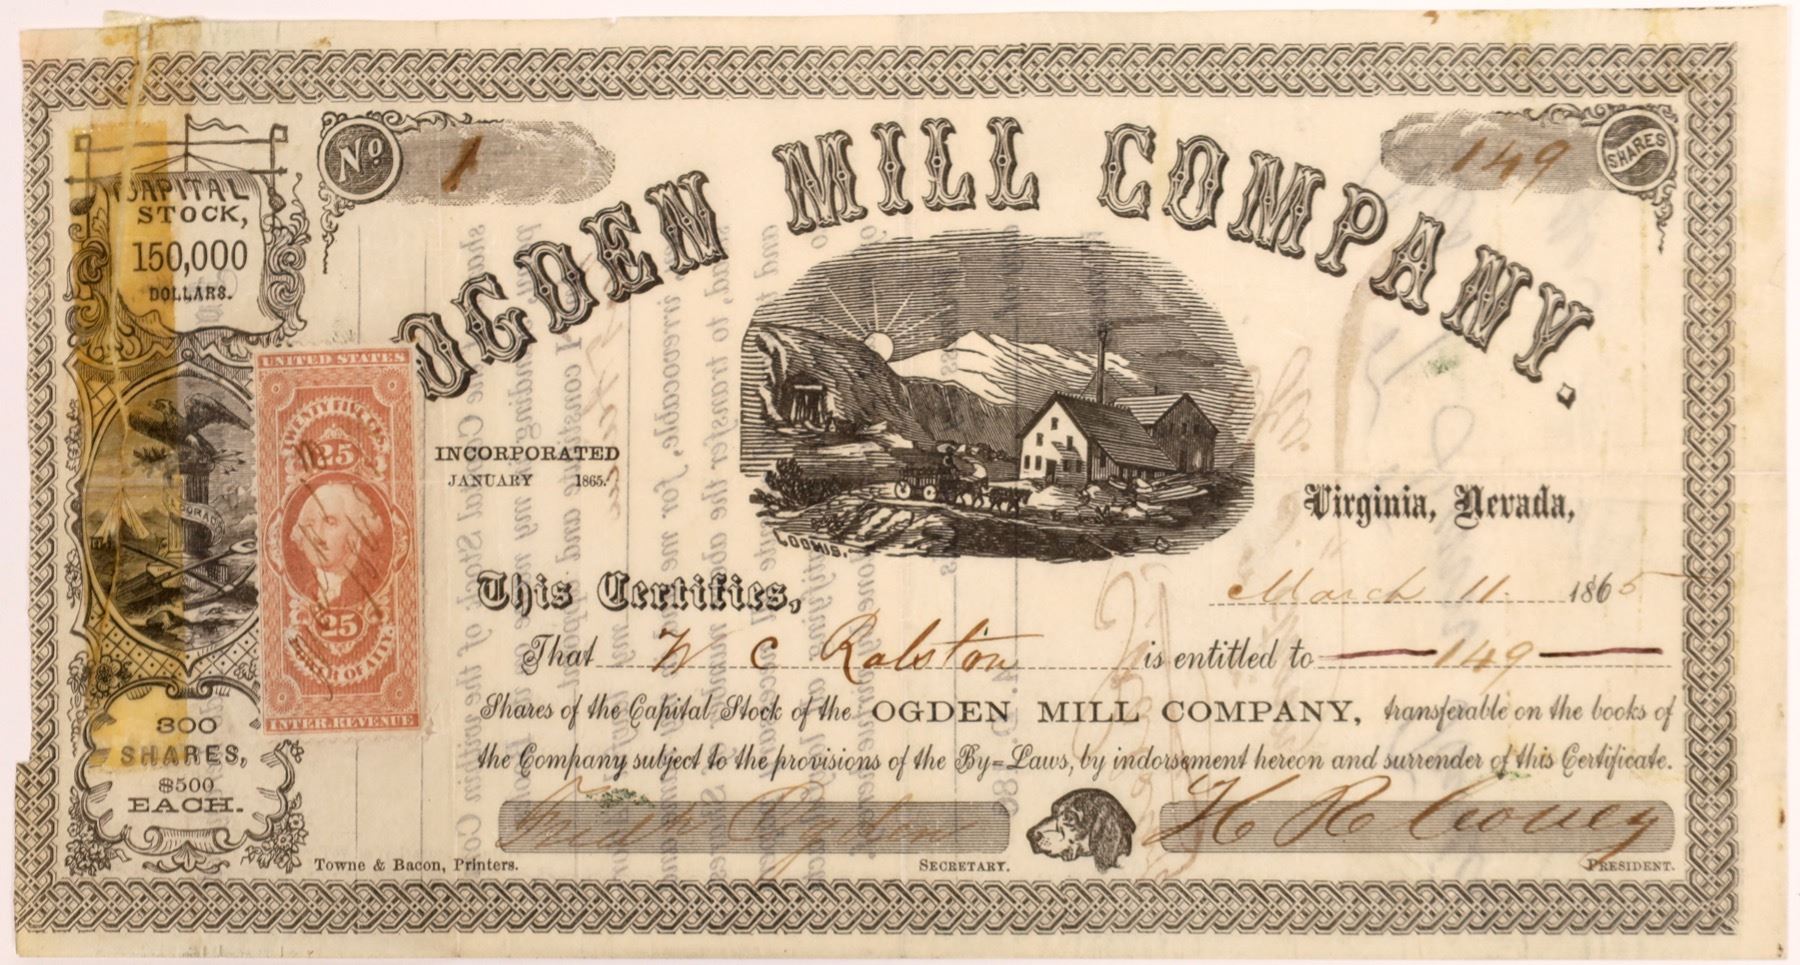 No 1
149 SHARES
OGDEN MILL COMPANY.
CAPITAL
STOCK,
150,000
DOLLARS.
UNITED STATES
TWENTY FIVE CTS.
25
25
POWER OF ATT'Y.
INTER. REVENUE
INCORPORATED
JANUARY 1865.
LOOMIS.
Virginia, Nevada,
March 11. 1865
This Certifies,
That W C Ralston is entitled to 149
Shares of the Capital Stock of the OGDEN MILL COMPANY, transferable on the books of
the Company subject to the provisions of the By=Laws, by indorsement hereon and surrender of this Certificate.
300
SHARES,
$500
EACH.
SECRETARY.
PRESIDENT.
Towne & Bacon, Printers.